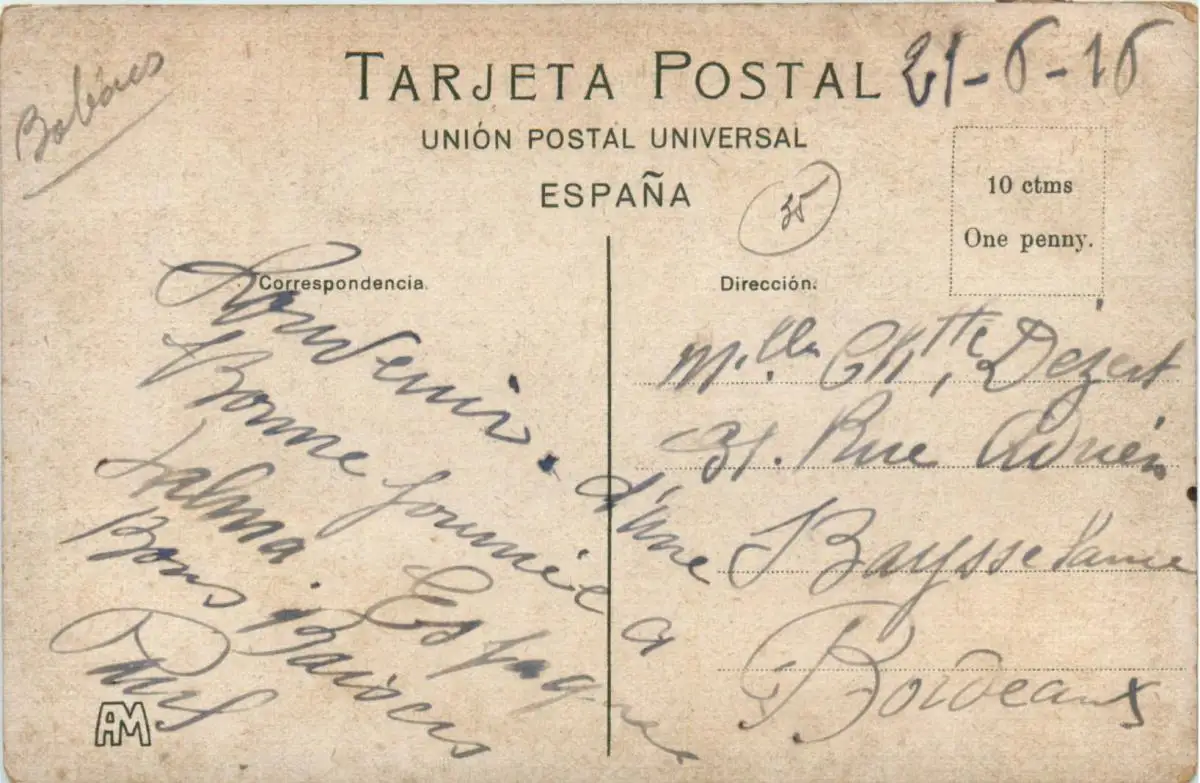 TARJETA POSTAL
21-6-16
UNIÓN POSTAL UNIVERSAL
ESPAÑA
35
10 ctms
One penny.
Correspondencia.
Dirección.
Souvenir d'une
Bonne journée a
Palma. Espagne
Bons Baisers
Mlle Dézert
31. Rue Adrien
Bayssellance
Bordeaux
AM